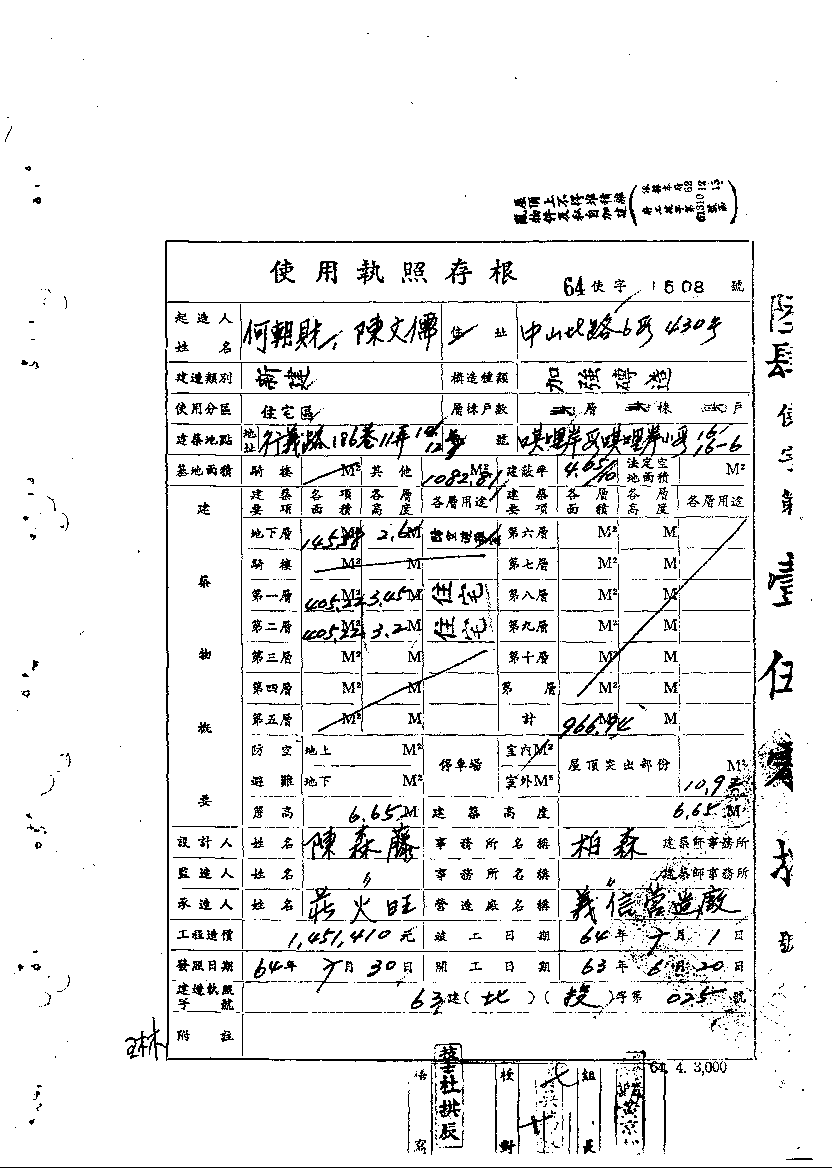 屋頂上不得堆積雜
亂物件及私自加建
使用執照存根 64使字 1508 號
起造人姓名 何朝財、陳文儒 住址 中山北路6段430号
建造類別 新建 構造種類 加強磚造
使用分區 住宅區 層棟戶數 層 棟 戶
建築地點 地址 行義路186巷11弄 12 號 唭哩岸段唭哩岸小段 16-6
基地面積 騎樓 M² 其他 1082.81 M² 建蔽率 4.65/10 法定空地面積 M²
建築物概要
建築要項 各項面積 各層高度 各層用途 建築要項 各層面積 各層高度 各層用途
地下層 M² 2.6M 第六層 M² M
騎樓 M² M 第七層 M² M
第一層 405.22 M² 3.45M 住宅 第八層 M² M
第二層 405.22 M² 3.2M 住宅 第九層 M² M
第三層 M² M 第十層 M² M
第四層 M² M 第 層 M² M
第五層 M² M 計 966.94 M²
防空避難 地上 M² 停車場 室內M² 屋頂突出部份 M²
地下 M² 室外M² 10.9
簷高 6.65M 建築高度 6.65M
設計人 姓名 陳森藤 事務所名稱 柏森 建築師事務所
監造人 姓名 〃 事務所名稱 〃 建築師事務所
承造人 姓名 莊火旺 營造廠名稱 義信營造廠
工程造價 1,451,410元 竣工日期 64年7月1日
發照日期 64年7月30日 開工日期 63年6月20日
建造執照字號 63建(北)(投)字第025號
附註
64. 4. 3,000
技士杜拱辰
校對
組長